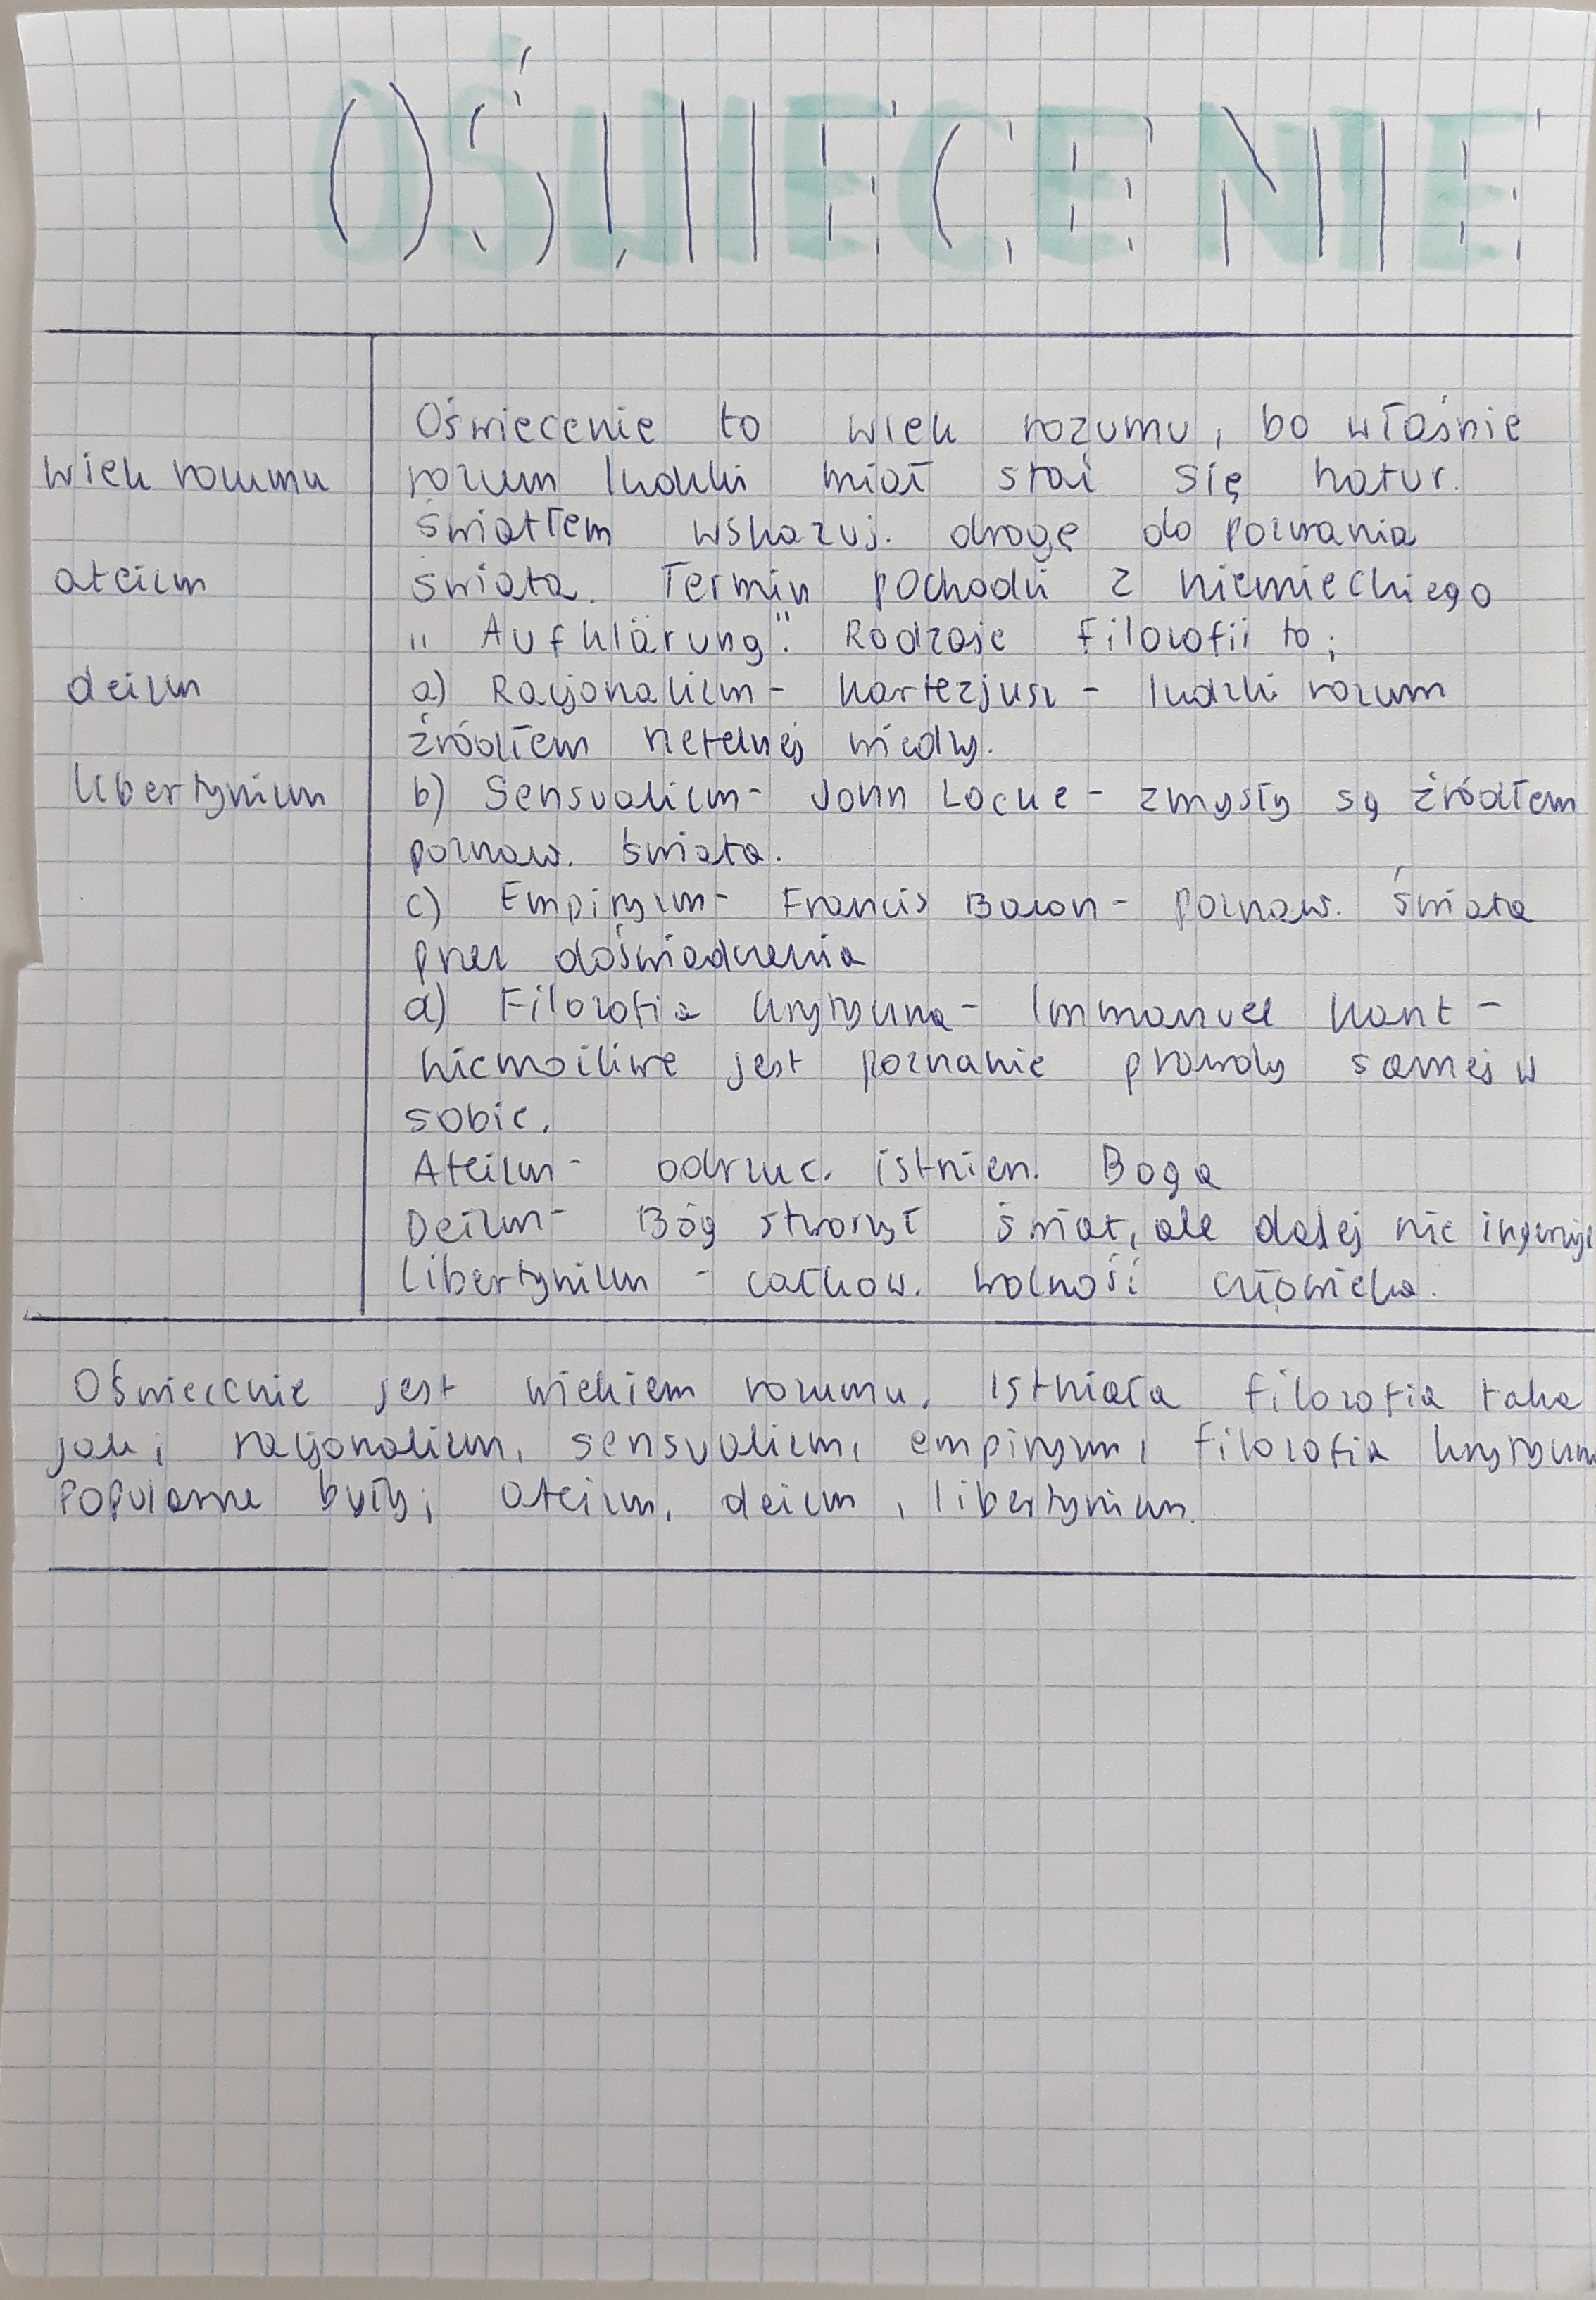 OŚWIECENIE
wiek rozumu
ateizm
deizm
libertynizm
Oświecenie to wiek rozumu, bo właśnie
rozum ludzki miał stać się natur.
światłem wskazuj. drogę do poznania
świata. Termin pochodzi z niemieckiego
„Aufklärung". Rodzaje filozofii to;
a) Racjonalizm - Kartezjusz - ludzki rozum
źródłem rzetelnej wiedzy.
b) Sensualizm - John Locke - zmysły są źródłem
poznaw. świata.
c) Empiryzm - Francis Bacon - poznaw. świata
przez doświadczenia
d) Filozofia krytyczna - Immanuel Kant -
niemożliwe jest poznanie prawdy samej w
sobie.
Ateizm - odrzuc. istnien. Boga
Deizm - Bóg stworzył świat, ale dalej nie ingeruje
Libertynizm - całkow. wolność człowieka.
Oświecenie jest wiekiem rozumu. Istniała filozofia taka
jak; racjonalizm, sensualizm, empiryzm, filozofia
Popularne były; ateizm, deizm, libertynizm.